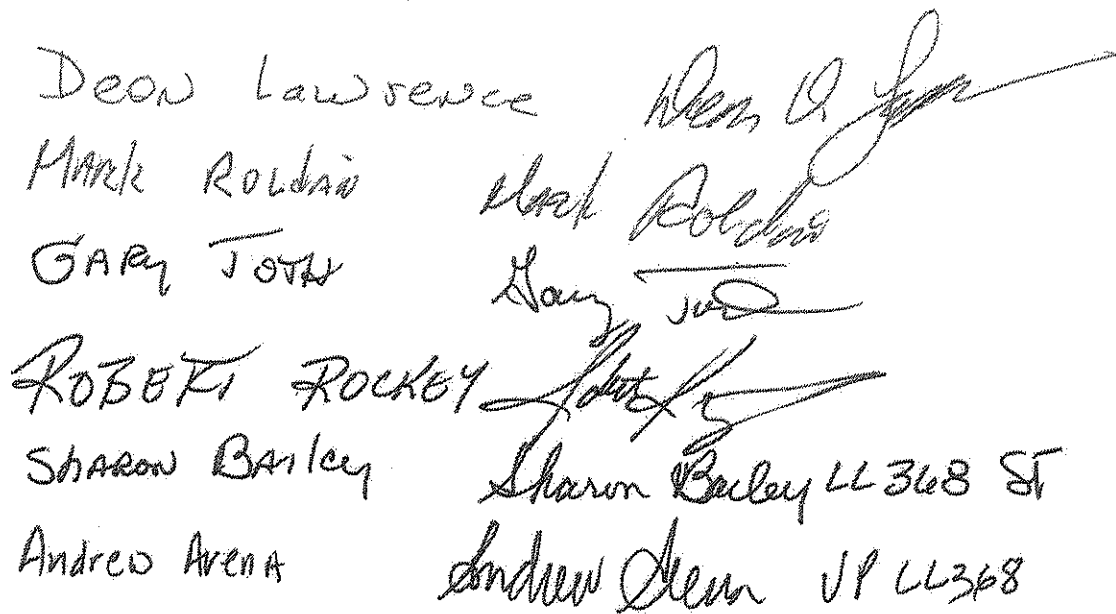 Deon Lawrence
Mark Roldan Mark Roldan
Gary Toth Gary Toth
ROBERT ROCKEY Robert
Sharon Bailey Sharon Bailey LL 368 ST
Andrew Arena Andrew Arena VP LL368